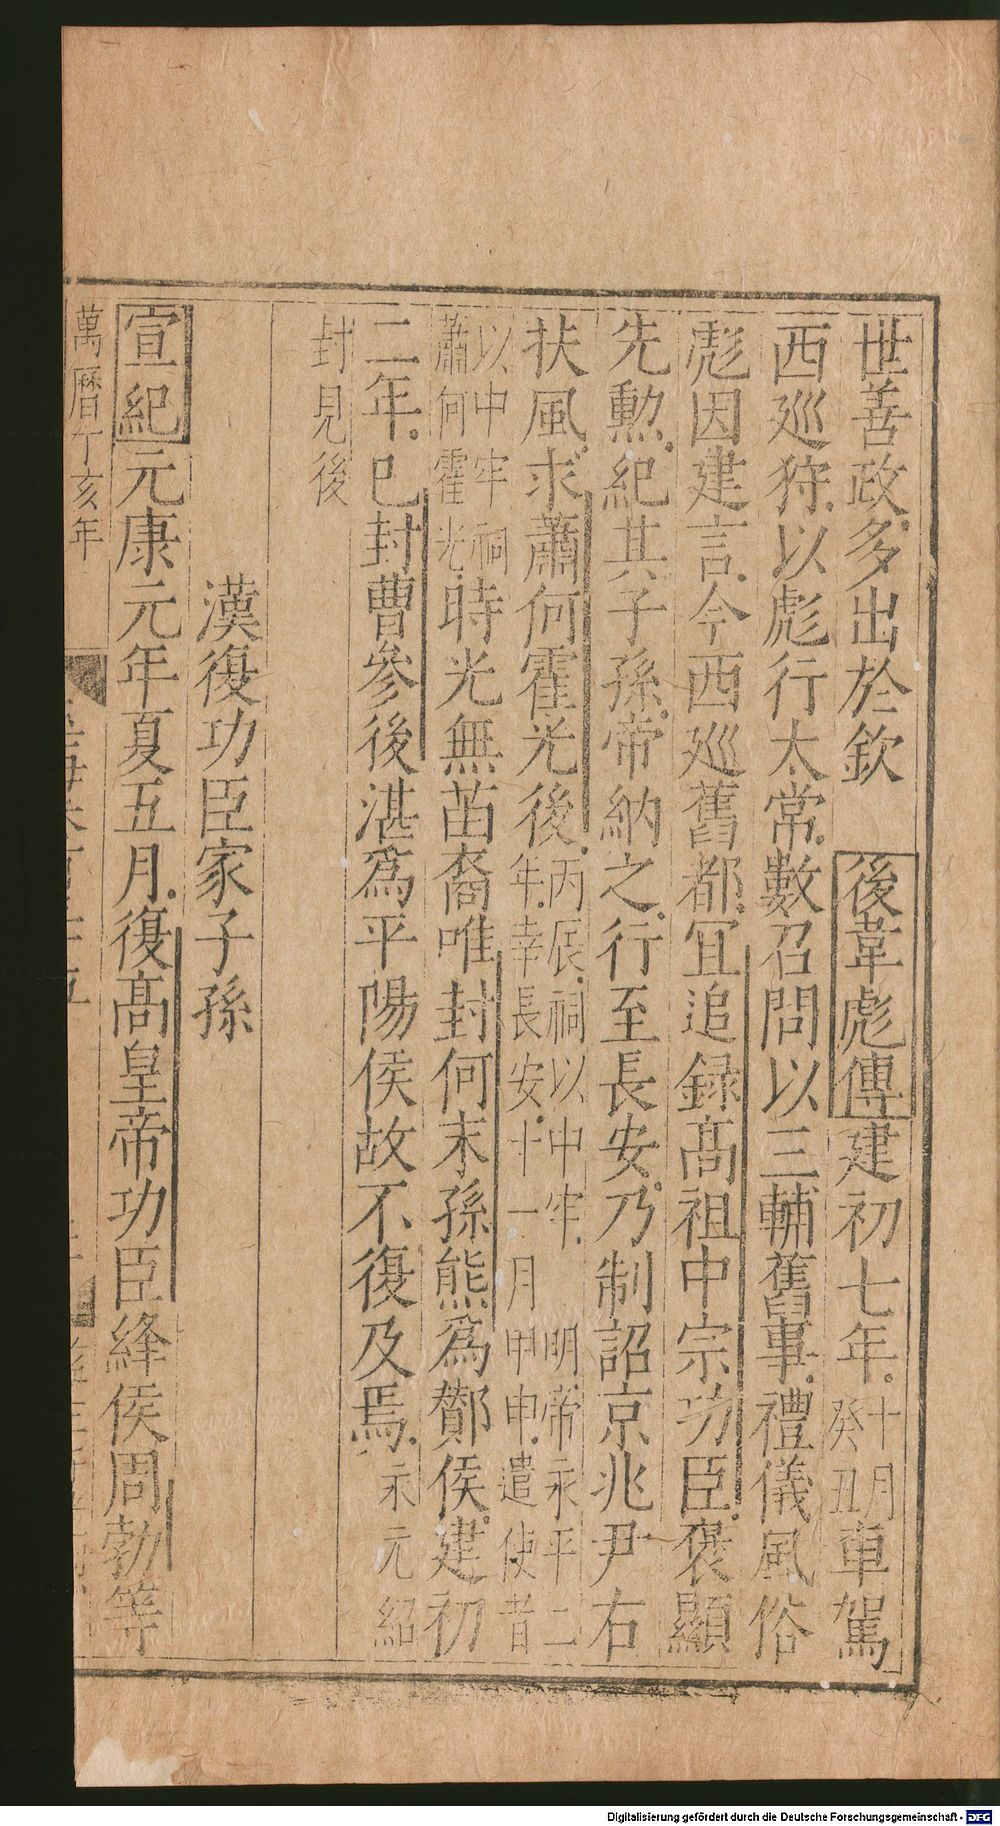 世善政多出於欽　後韋彪傳建初七年十月癸丑車駕
西廵狩以彪行太常數召問以三輔舊事禮儀風俗
彪因建言今西廵舊都宜追録髙祖中宗功臣褒顯
先勲紀其子孫帝納之行至長安乃制詔京兆尹右
扶風求蕭何霍光後丙辰祠以中牢　明帝永平二年幸長安十一月甲申遣使者
以中牢祠蕭何霍光時光無苗裔唯封何末孫熊爲酇侯建初
二年已封曹參後湛爲平陽侯故不復及焉永元紹
封見後
漢復功臣家子孫
宣紀元康元年夏五月復髙皇帝功臣絳侯周勃等
萬曆丁亥年
Digitalisierung gefördert durch die Deutsche Forschungsgemeinschaft - DFG